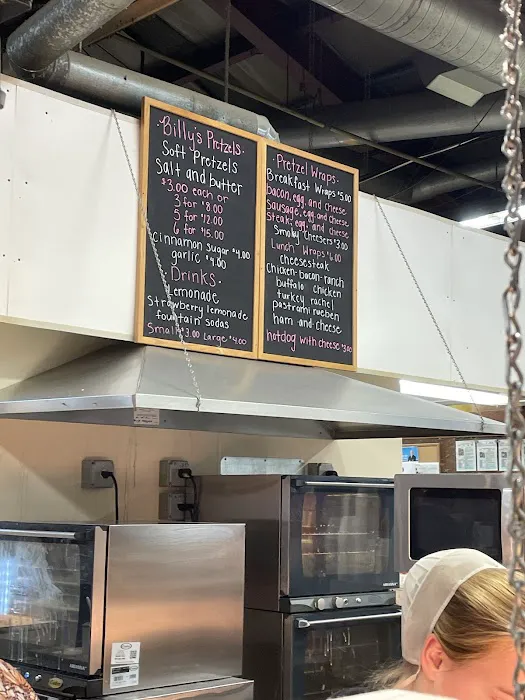 ·Billy's Pretzels·
Soft Pretzels
Salt and butter
$3.00 each or
3 for $8.00
5 for $12.00
6 for $15.00
Cinnamon Sugar $4.00
garlic $4.00
Drinks·
Lemonade
Strawberry lemonade
fountain sodas
Small $3.00 Large $4.00
·Pretzel Wraps·
Breakfast Wraps $5.00
Bacon, egg, and cheese
Sausage, egg, and cheese
Steak, egg, and cheese
Smoky Cheesers $3.00
Lunch Wraps $6.00
cheesesteak
chicken-bacon-ranch
buffalo chicken
turkey rachel
pastrami rueben
ham and cheese
hotdog with cheese